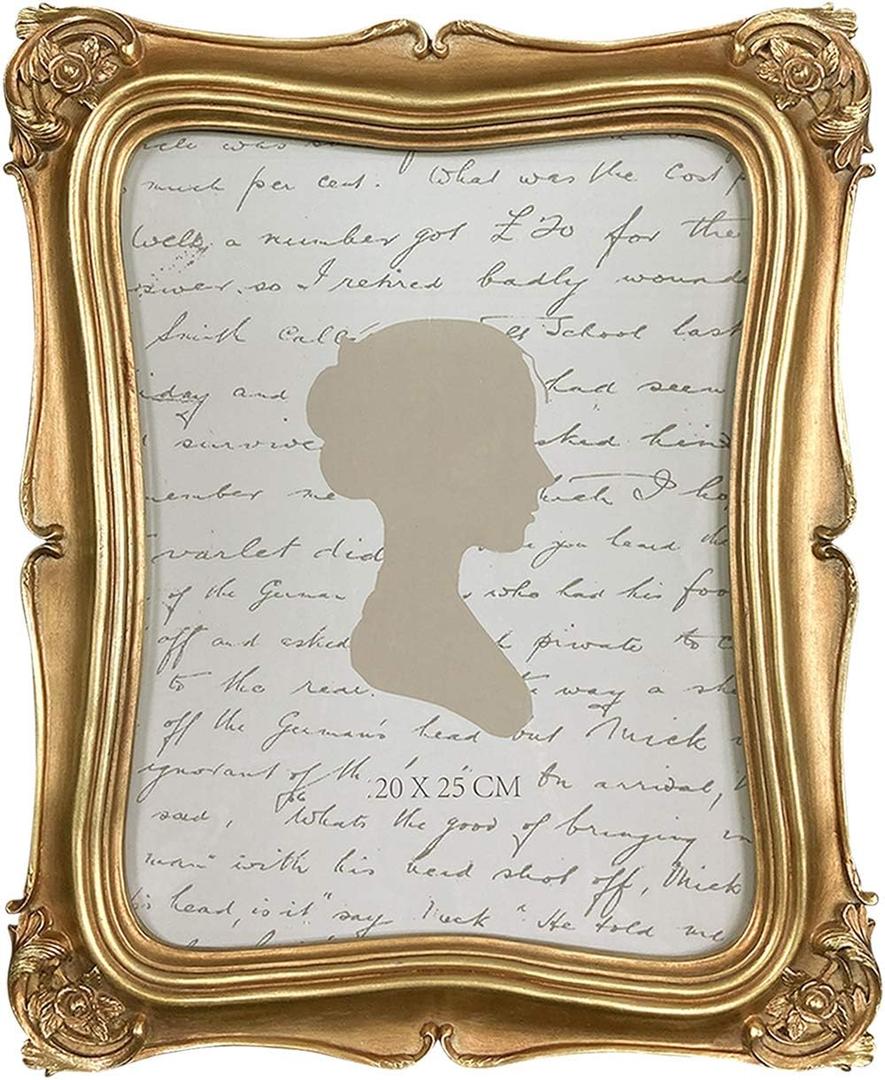 was
much per cent. What was the Cost
Well a number got £20 for the
so I retired badly wounde
Smith Calle School last
day and had seen
survive sked him
ember me I ho
varlet did you heard the
of the German who had his foo
off and asked private to c
to the rear. way a she
off the German's head but Mick
ignorant of th On arrival,
20 X 25 CM
said, "Whats the good of bringing in
man" with his head shot off, Mick
head, is it" say Mick "He told me